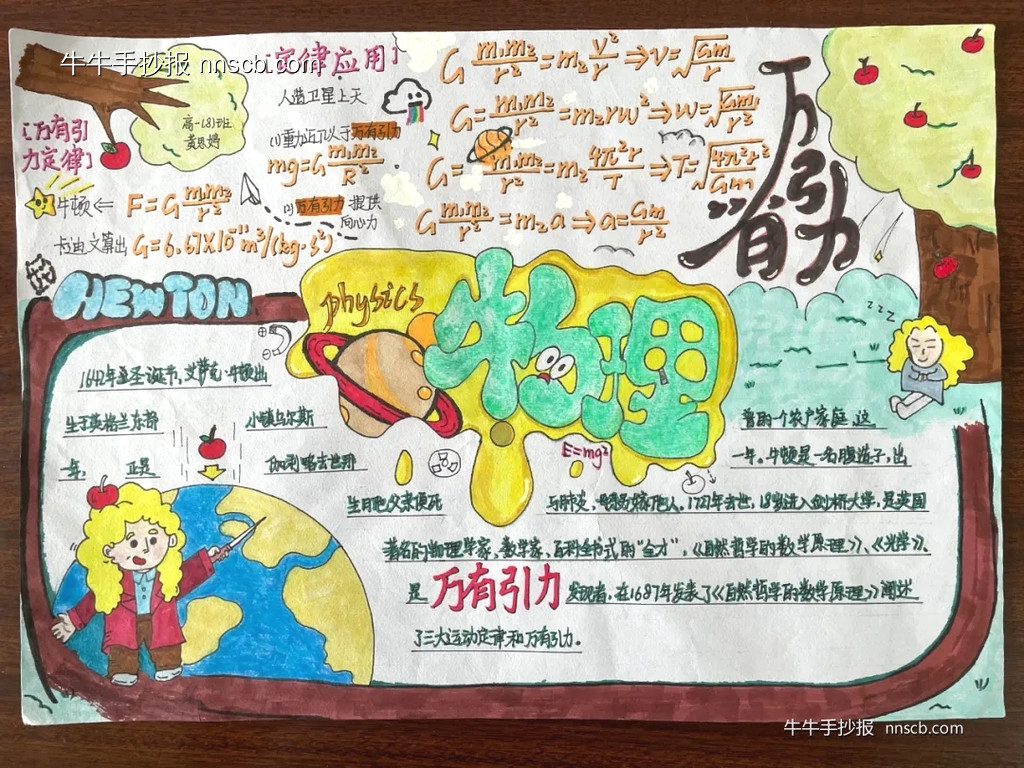 牛牛手抄报 nnscb.com
[定律应用]
人造卫星上天
[万有引
力定律]
高一(8)班
黄思婷
牛顿⇐ F=G m₁m₂/r²
卡迪文算出 G=6.67×10⁻¹¹m³/(kg·s²)
(1)重力近似于万有引力
mg=G m₁m₂/R²
(1)万有引力 提供
向心力
G m₁m₂/r²=m₂ v²/r⇒v=√(Gm/r)
G= m₁m₂/r²=m₂rw²⇒w=√(Gm/r³)
G= m₁m₂/r²=m₂ 4π²r/T⇒T=√(4π²r³/Gm)
G m₁m₂/r²=m₂a⇒a=Gm/r²
万有引力
NEWTON
physics
物理
E=mg²
zzz
1642年圣诞节,艾萨克·牛顿出
生于英格兰东部 小镇乌尔斯 普的一个农户家庭 这
一年, 正是 伽利略去世那 一年。牛顿是一名腹遗子,出
生月 父亲便死 于肺炎, 嫁他人。1721年去世,18岁进入剑桥大学,是英国
著名的物理学家,数学家,百科全书式的“全才”,《自然哲学的数学原理》、《光学》、
是万有引力发现者,在1687年发表了《自然哲学的数学原理》阐述
了三大运动定律和万有引力。
牛牛手抄报 nnscb.com